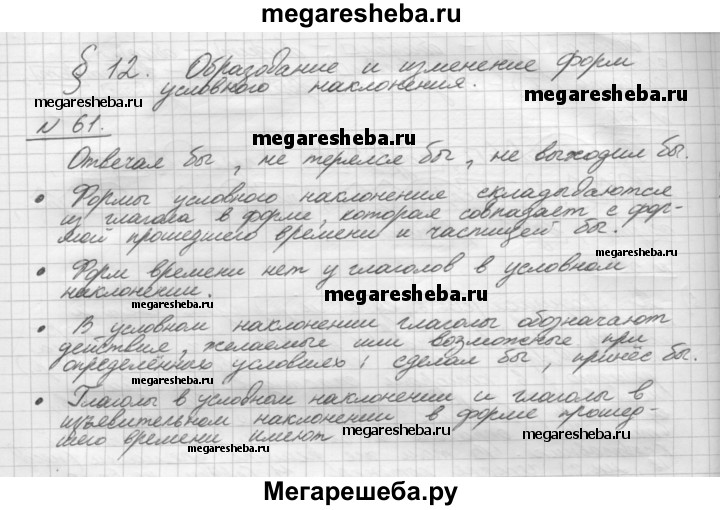 megaresheba.ru
§ 12. Образование и изменение форм
условного наклонения.
megaresheba.ru
megaresheba.ru
N 61.
megaresheba.ru
Отвечал бы, не терялся бы, не выходил бы.
• Формы условного наклонения складываются
из глагола в форме, которая совпадает с фор-
мой прошедшего времени и частицей бы.
megaresheba.ru
• Форм времени нет у глаголов в условном
наклонении.
megaresheba.ru
megaresheba.ru
• В условном наклонении глаголы обозначают
действия, желаемые или возможные при
определённых условиях, сделал бы, принёс бы.
megaresheba.ru
megaresheba.ru
• Глаголы в условном наклонении и глаголы в
изъявительном наклонении в форме прошед-
шего времени имеют
megaresheba.ru
megaresheba.ru
Мегарешеба.ру